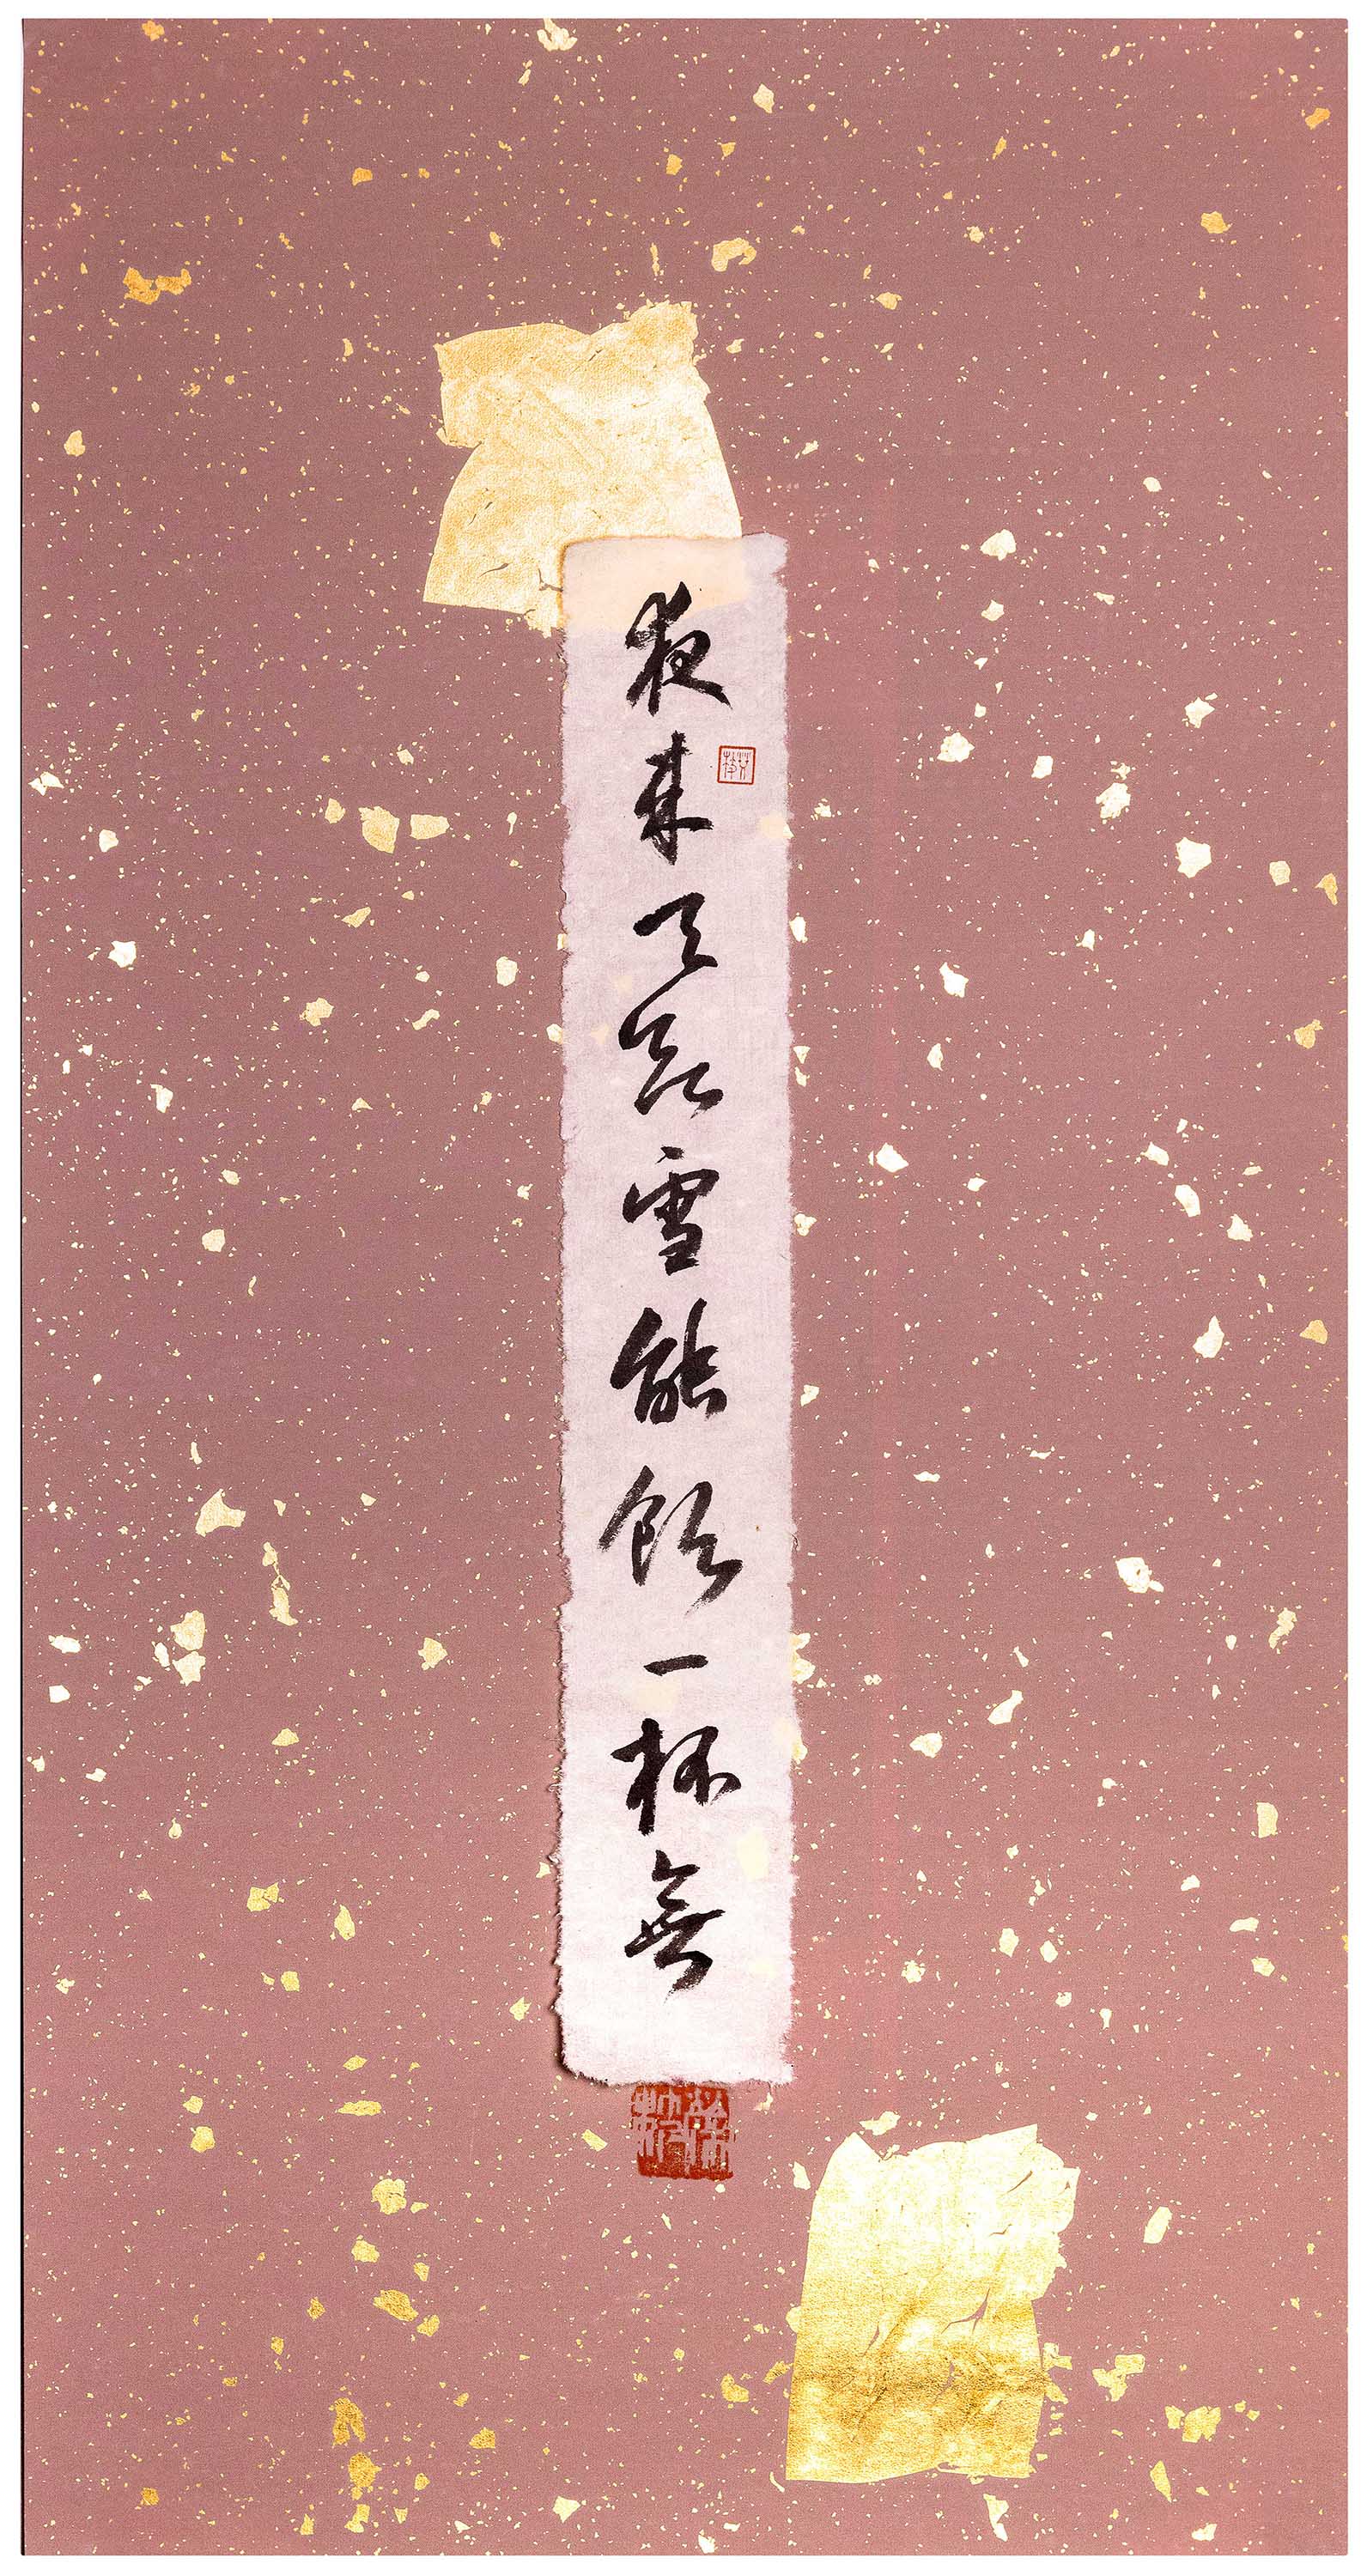 夜來天欲雪能飲一杯無